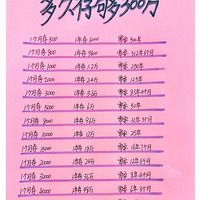 多久存够300万
1个月存 500 1年存 6000 需要 500年
1个月存 800 1年存 9600 需要 312年6个月
1个月存 1000 1年存 1.2万 需要 250年
1个月存 2000 1年存 2.4万 需要 125年
1个月存 3000 1年存 3.6万 需要 83年4个月
1个月存 5000 1年存 6万 需要 50年
1个月存 8000 1年存 9.6万 需要 31年3个月
1个月存 10000 1年存 12万 需要 25年
1个月存 15000 1年存 18万 需要 16年8个月
1个月存 20000 1年存 24万 需要 12年6个月
1个月存 30000 1年存 36万 需要 8年4个月
1个月存 40000 1年存 48万 需要 6年3个月